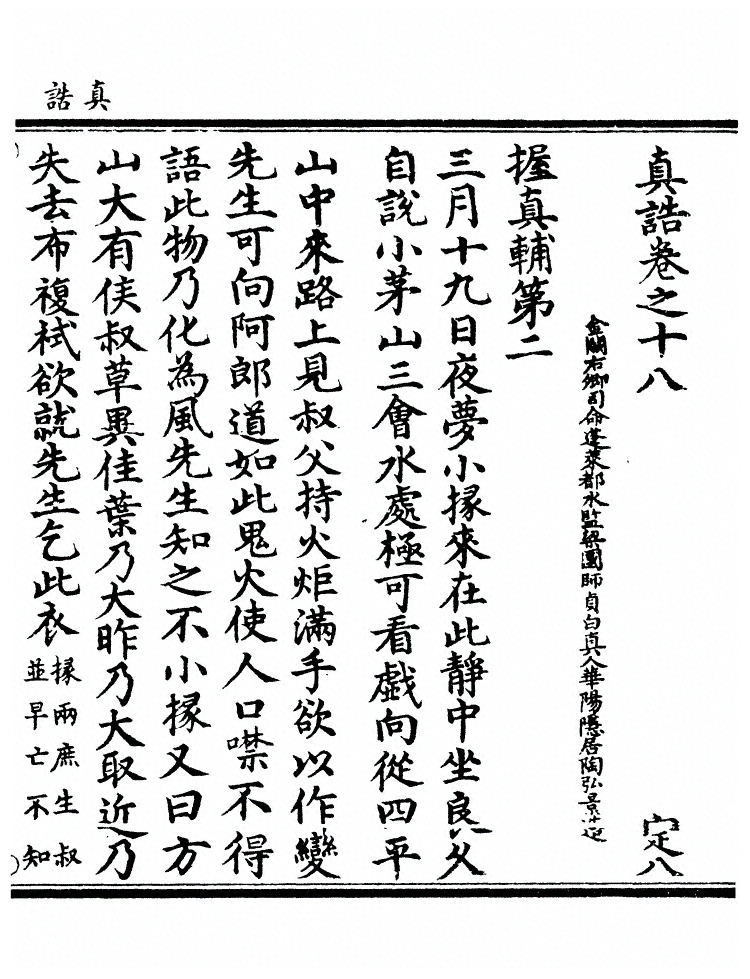 真誥
真誥卷之十八
定八
金闕右卿司命蓬萊都水監梁國師貞白真人華陽隱居陶弘景造
握真輔第二
三月十九日夜夢小掾來在此靜中坐良久
自說小茅山三會水處極可看戲向從四平
山中來路上見叔父持火炬滿手欲以作變
先生可向阿郎道如此鬼火使人口噤不得
語此物乃化為風先生知之不小掾又曰方
山大有侯叔草異佳葉乃大昨乃大取近乃
失去布複栻欲就先生乞此衣掾兩庶生叔
並早亡不知